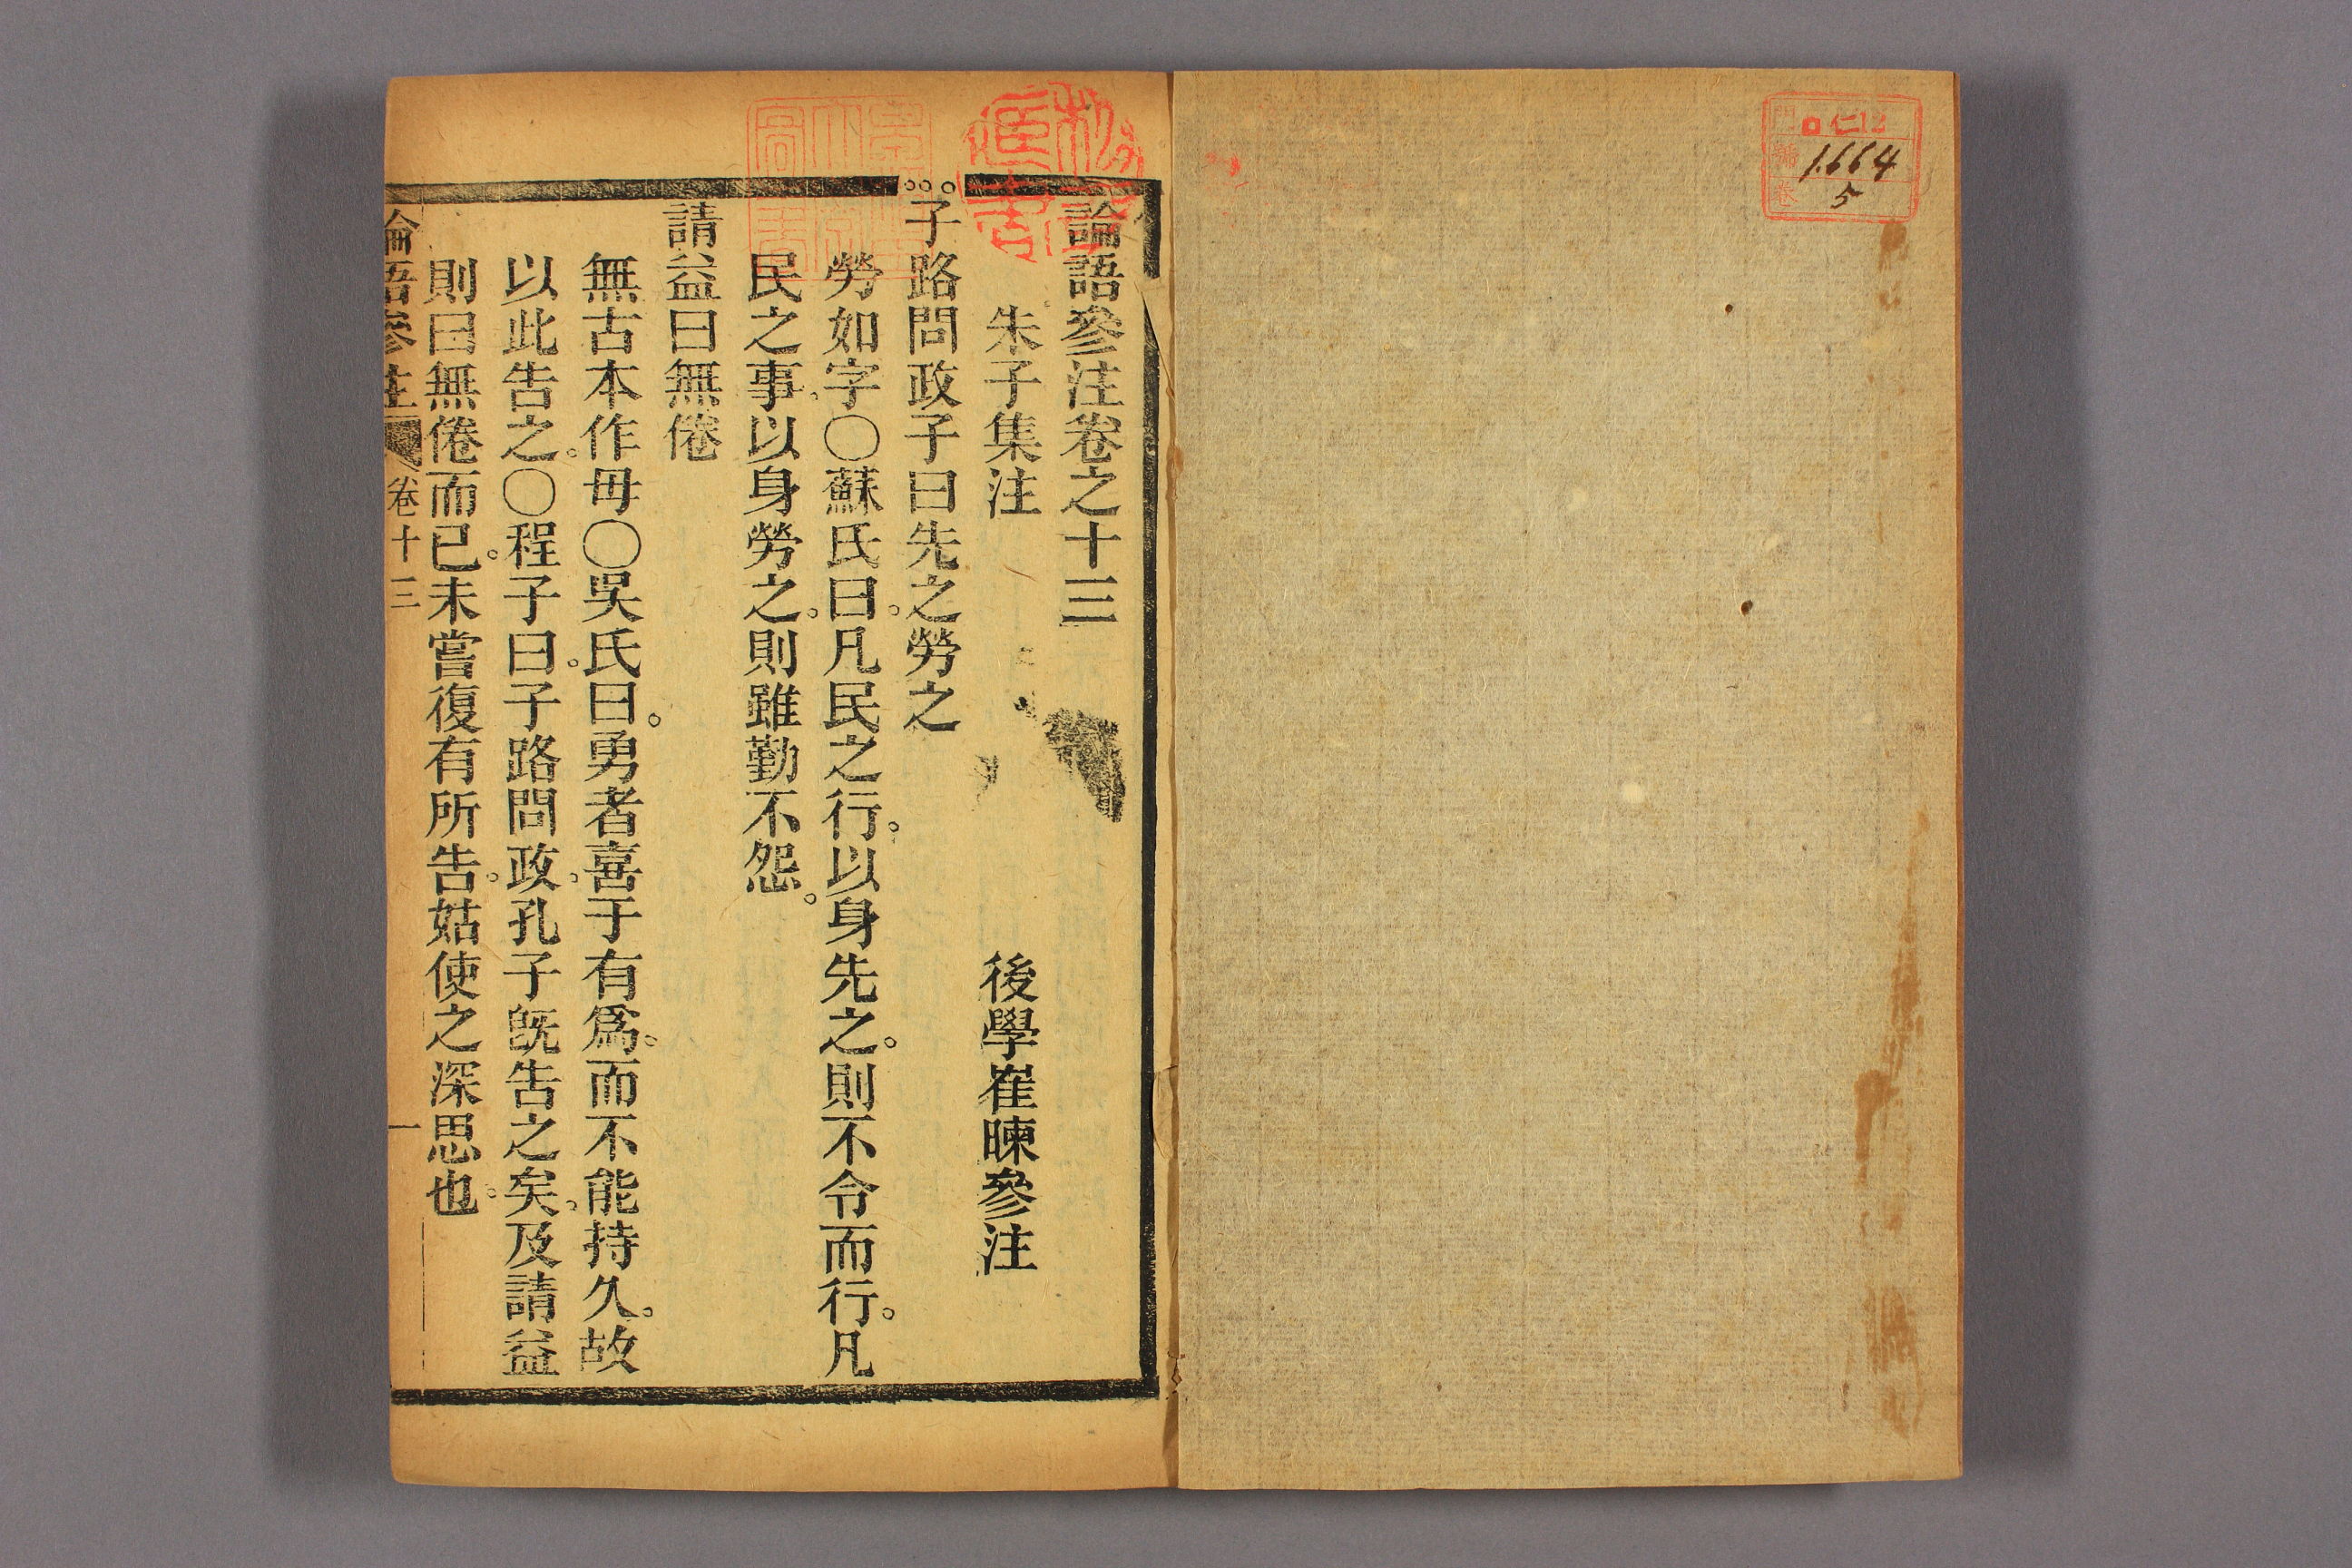 仁12
1664
5
論語參注卷之十三
朱子集注　後學崔暕參注
子路問政子曰先之勞之
勞如字〇蘇氏曰。凡民之行。以身先之。則不令而行。凡
民之事。以身勞之。則雖勤不怨。
請益曰無倦
無古本作毋〇吳氏曰。勇者喜于有爲。而不能持久。故
以此告之。〇程子曰。子路問政。孔子旣告之矣。及請益
則曰無倦而已。未嘗復有所告。姑使之深思也。
論語參注　卷十三　一